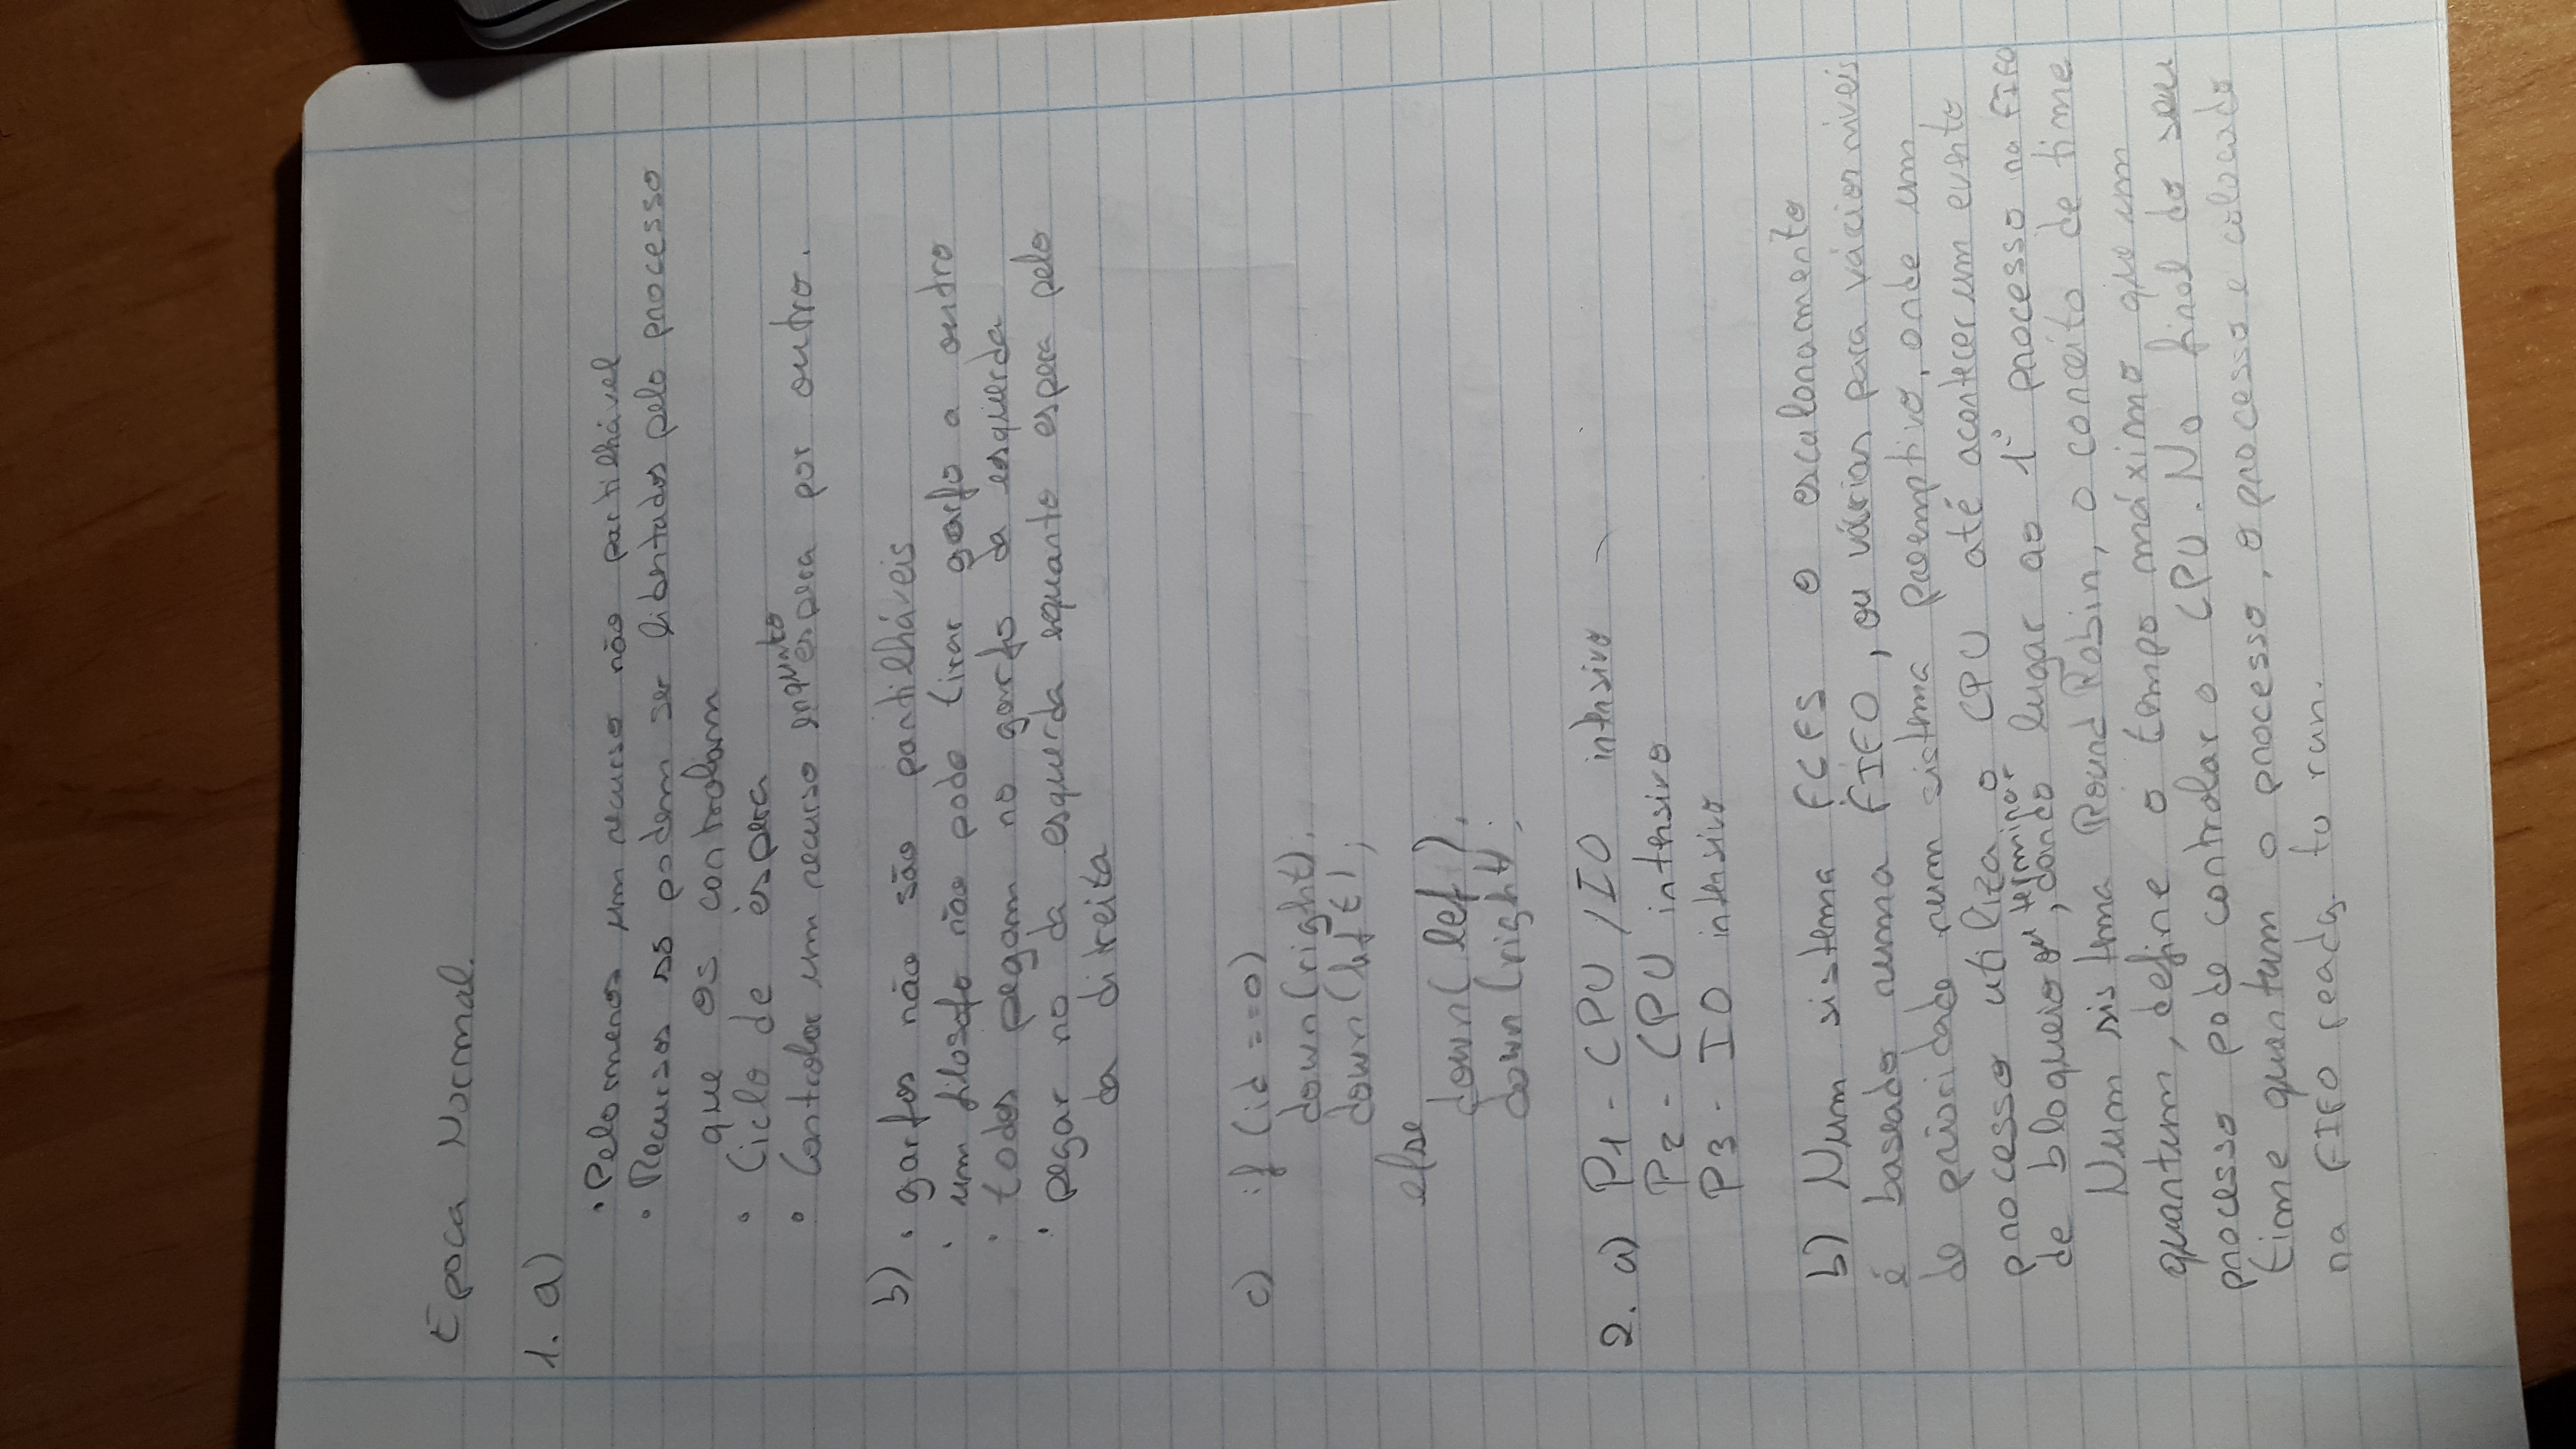 Epoca Normal.
1. a)
• Pelo menos um recurso não partilhável
• Recursos só podem ser libertados pelo processo
que os controlam
• Ciclo de espera
• Controlar um recurso enquato espera por outro.
b) • garfos não são partilháveis
• um filosofo não pode tirar garfo a outro
• todos pegam no garfo da esquerda
• pegar no da esquerda equanto espera pelo
da ditreita
c) if (id == 0)
down(right);
down(left);
else
down(lef);
down(right);
2. a) P1 - CPU / IO intensivo
P2 - CPU intensivo
P3 - IO intensivo
b) Num sistema FCFS o escalonamento
é baseado numa FIFO, ou várias para vários niveis
de prioridade num sistema preemptivo, onde um
processo utiliza o CPU até acontecer um evento
de bloqueio ou terminar, dando lugar ao 1º processo na FIFO
Num sistema Round Robin, o conceito de time
quantum, define o tempo máximo que um
processo pode controlar o CPU. No final do seu
time quantum o processo, o processo e colocado
na FIFO ready to run.